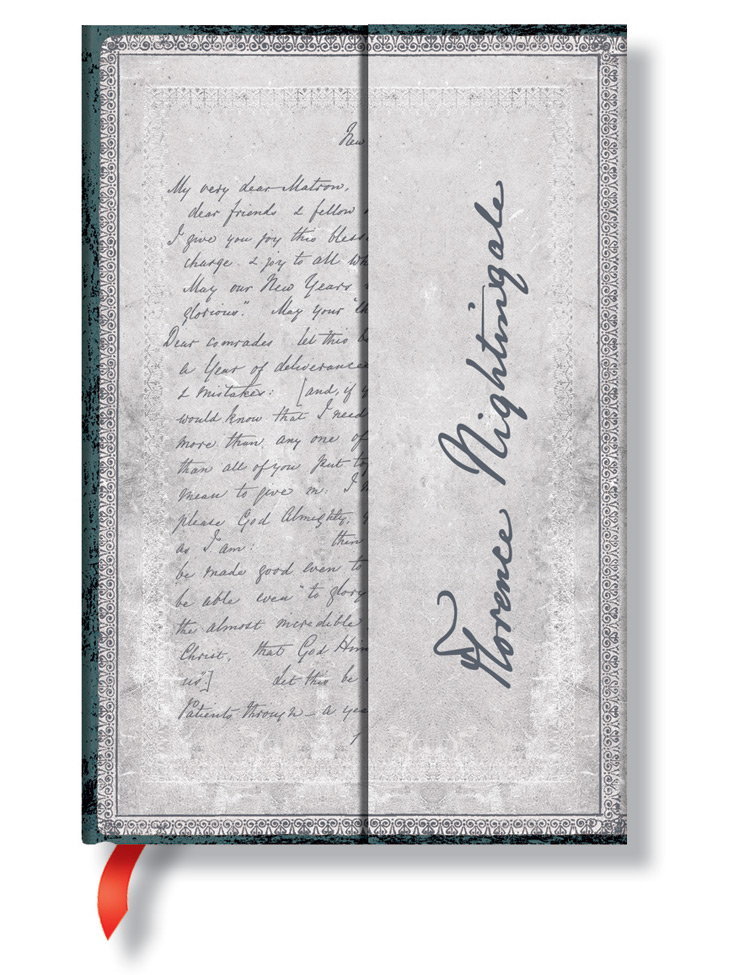 New
My very dear Matron,
dear friends & fellow
I give you joy this bless
charge. & joy to all wh
May our New Years
glorious". May your "th
Dear comrades let this b
a Year of deliverance
& mistakes: [and, if y
would know that I need
more than any one of
than all of you put to
mean to give in. I
please God Almighty,
as I am: then
be made good even to
be able even "to glory
the almost incredible
Christ, that God Him
us".] Let this be
Patients through – a yea
Florence Nightingale